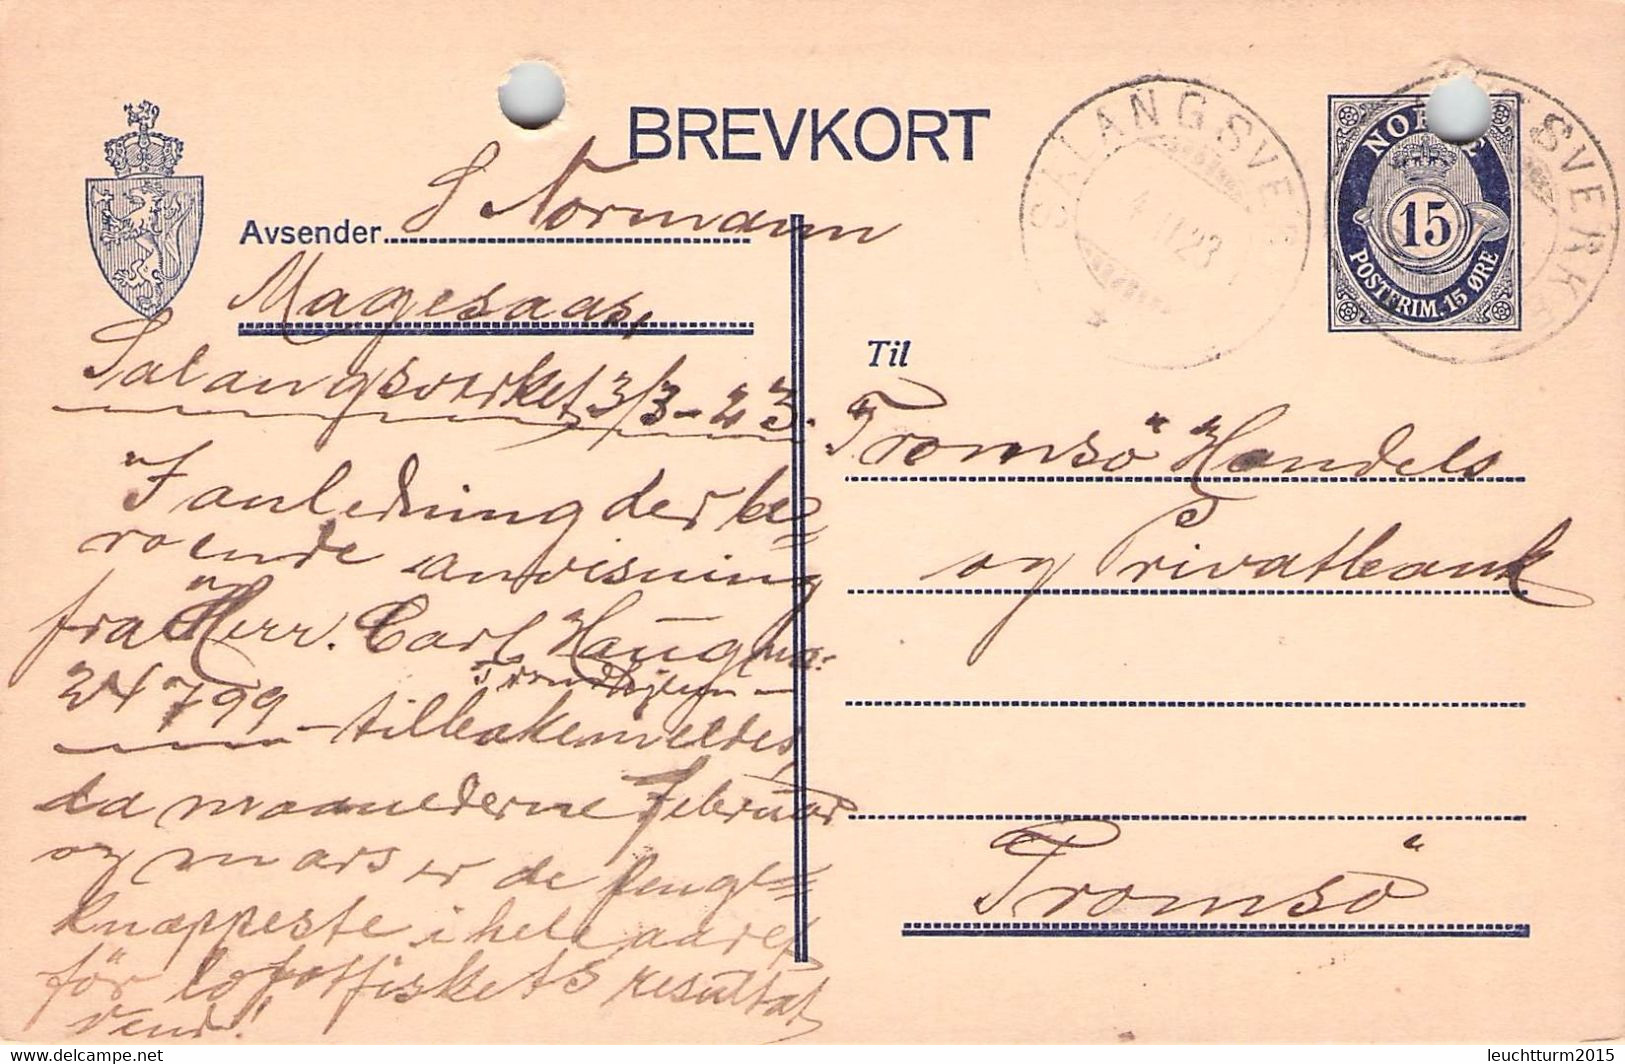 BREVKORT
Avsender S Normann
Magesaas,
Salangsverket 3/3-23.
I anledning der be=
roende anvisning
fra Herr. Carl Haug no:
24799 Trondhjem –
– tilbakemeldes,
da maanederne Februar
og mars er de penge=
knappeste i hele aaret
för lofotfiskets resultat
vend!
SALANGSVER
4 III 23
NORGE
15
POSTFRIM. 15 ØRE
GSVERKE
Til
Tromsö Handels
og Privatbank
Tromsö
leuchtturm2015